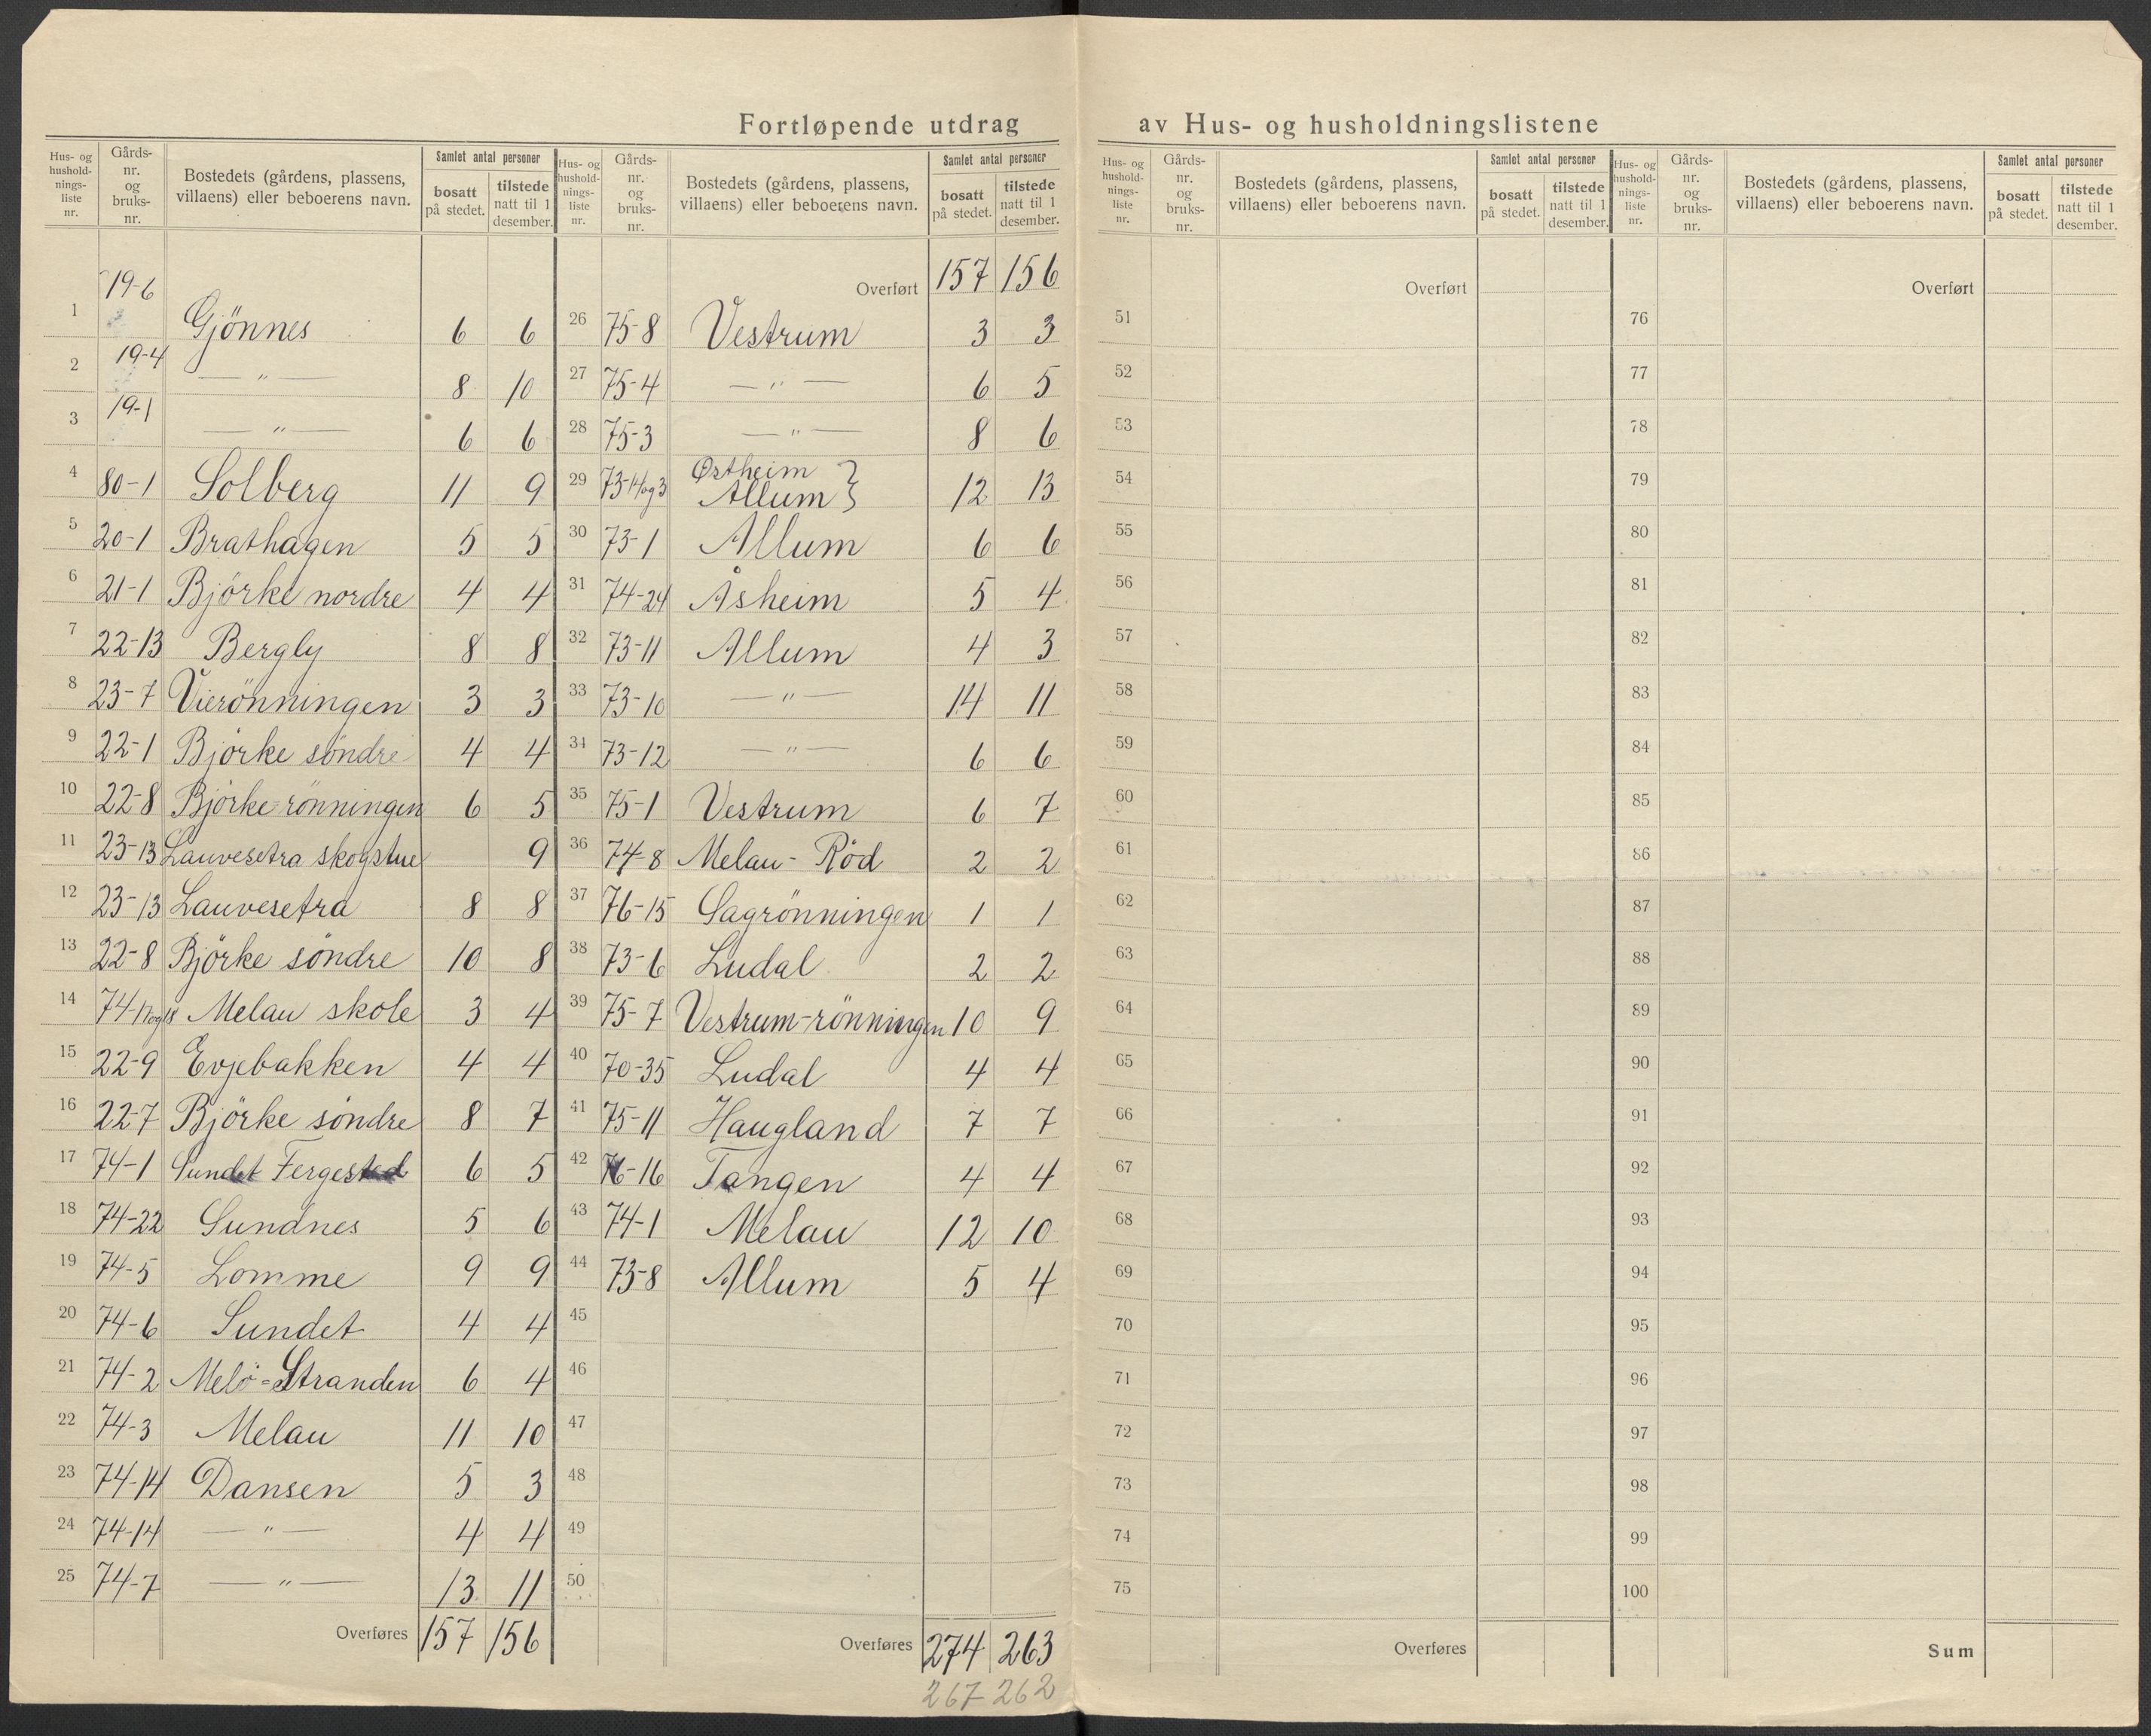 Fortløpende utdrag av Hus- og husholdningslistene
Hus- og hushold-nings-liste nr. Gårds-nr. og bruks-nr. Bostedets (gårdens, plassens, villaens) eller beboerens navn. Samlet antal personer bosatt på stedet. tilstede natt til 1 desember.
1 19-6 Gjönnes 6 6
2 19-4 — " — 8 10
3 19-1 — " — 6 6
4 80-1 Solberg 11 9
5 20-1 Brathagen 5 5
6 21-1 Björke nordre 4 4
7 22-13 Bergly 8 8
8 23-7 Vierönningen 3 3
9 22-1 Björke söndre 4 4
10 22-8 Björke-rönningen 6 5
11 23-13 Lauvesetra skogstue 9
12 23-13 Lauvesetra 8 8
13 22-8 Björke söndre 10 8
14 74-17og18 Melau skole 3 4
15 22-9 Evjebakken 4 4
16 22-7 Björke söndre 8 7
17 74-1 Sundet Fergested 6 5
18 74-22 Sundnes 5 6
19 74-5 Lomme 9 9
20 74-6 Sundet 4 4
21 74-2 Melö-Stranden 6 4
22 74-3 Melau 11 10
23 74-14 Dansen 5 3
24 74-14 — " — 4 4
25 74-7 — " — 13 11
Overføres 157 156
Hus- og hushold-nings-liste nr. Gårds-nr. og bruks-nr. Bostedets (gårdens, plassens, villaens) eller beboerens navn. Samlet antal personer bosatt på stedet. tilstede natt til 1 desember.
Overført 157 156
26 75-8 Vestrum 3 3
27 75-4 — " — 6 5
28 75-3 — " — 8 6
29 73-14og3 Østheim }
Allum } 12 13
30 73-1 Allum 6 6
31 74-24 Åsheim 5 4
32 73-11 Allum 4 3
33 73-10 — " — 14 11
34 73-12 — " — 6 6
35 75-1 Vestrum 6 7
36 74-8 Melau-Röd 2 2
37 76-15 Sagrönningen 1 1
38 73-6 Ludal 2 2
39 75-7 Vestrum-rönningen 10 9
40 70-35 Ludal 4 4
41 75-11 Haugland 7 7
42 76-16 Tangen 4 4
43 74-1 Melau 12 10
44 73-8 Allum 5 4
45
46
47
48
49
50
Overføres 274 263
267 262
Hus- og hushold-nings-liste nr. Gårds-nr. og bruks-nr. Bostedets (gårdens, plassens, villaens) eller beboerens navn. Samlet antal personer bosatt på stedet. tilstede natt til 1 desember.
Overført
51
52
53
54
55
56
57
58
59
60
61
62
63
64
65
66
67
68
69
70
71
72
73
74
75
Overføres
Hus- og hushold-nings-liste nr. Gårds-nr. og bruks-nr. Bostedets (gårdens, plassens, villaens) eller beboerens navn. Samlet antal personer bosatt på stedet. tilstede natt til 1 desember.
Overført
76
77
78
79
80
81
82
83
84
85
86
87
88
89
90
91
92
93
94
95
96
97
98
99
100
Sum